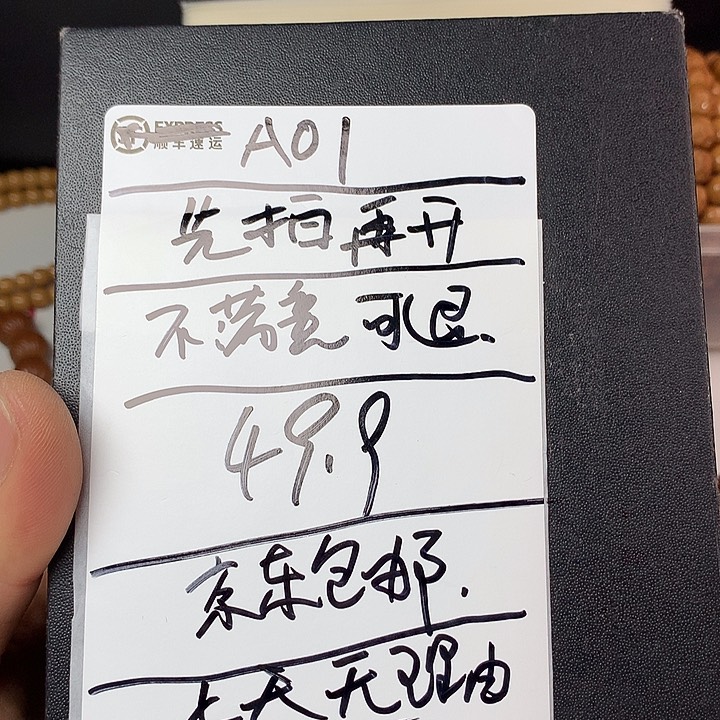 EXPRESS
顺丰速运
A01
先拍再开
不满意可退.
49.9
京东包邮.
七天无理由